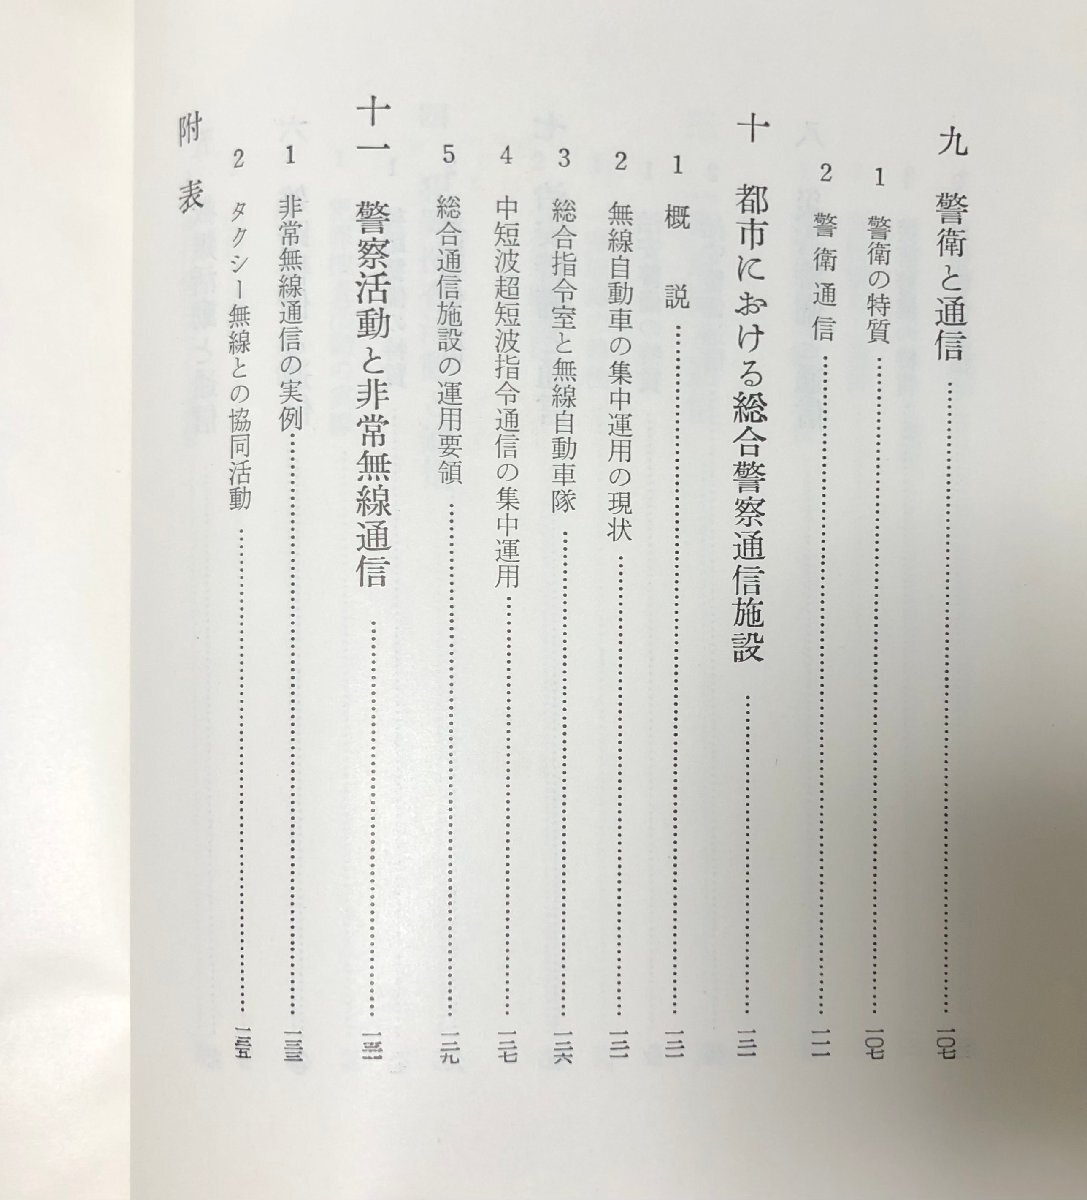 九　警衛と通信……一〇七
1　警衛の特質……一〇七
2　警衛通信……一一一
十　都市における総合警察通信施設……一二一
1　概　説……一二一
2　無線自動車の集中運用の現状……一二一
3　総合指令室と無線自動車隊……一二六
4　中短波超短波指令通信の集中運用……一二七
5　総合通信施設の運用要領……一二九
十一　警察活動と非常無線通信……
1　非常無線通信の実例……一三三
2　タクシー無線との協同活動……一三五
附　表